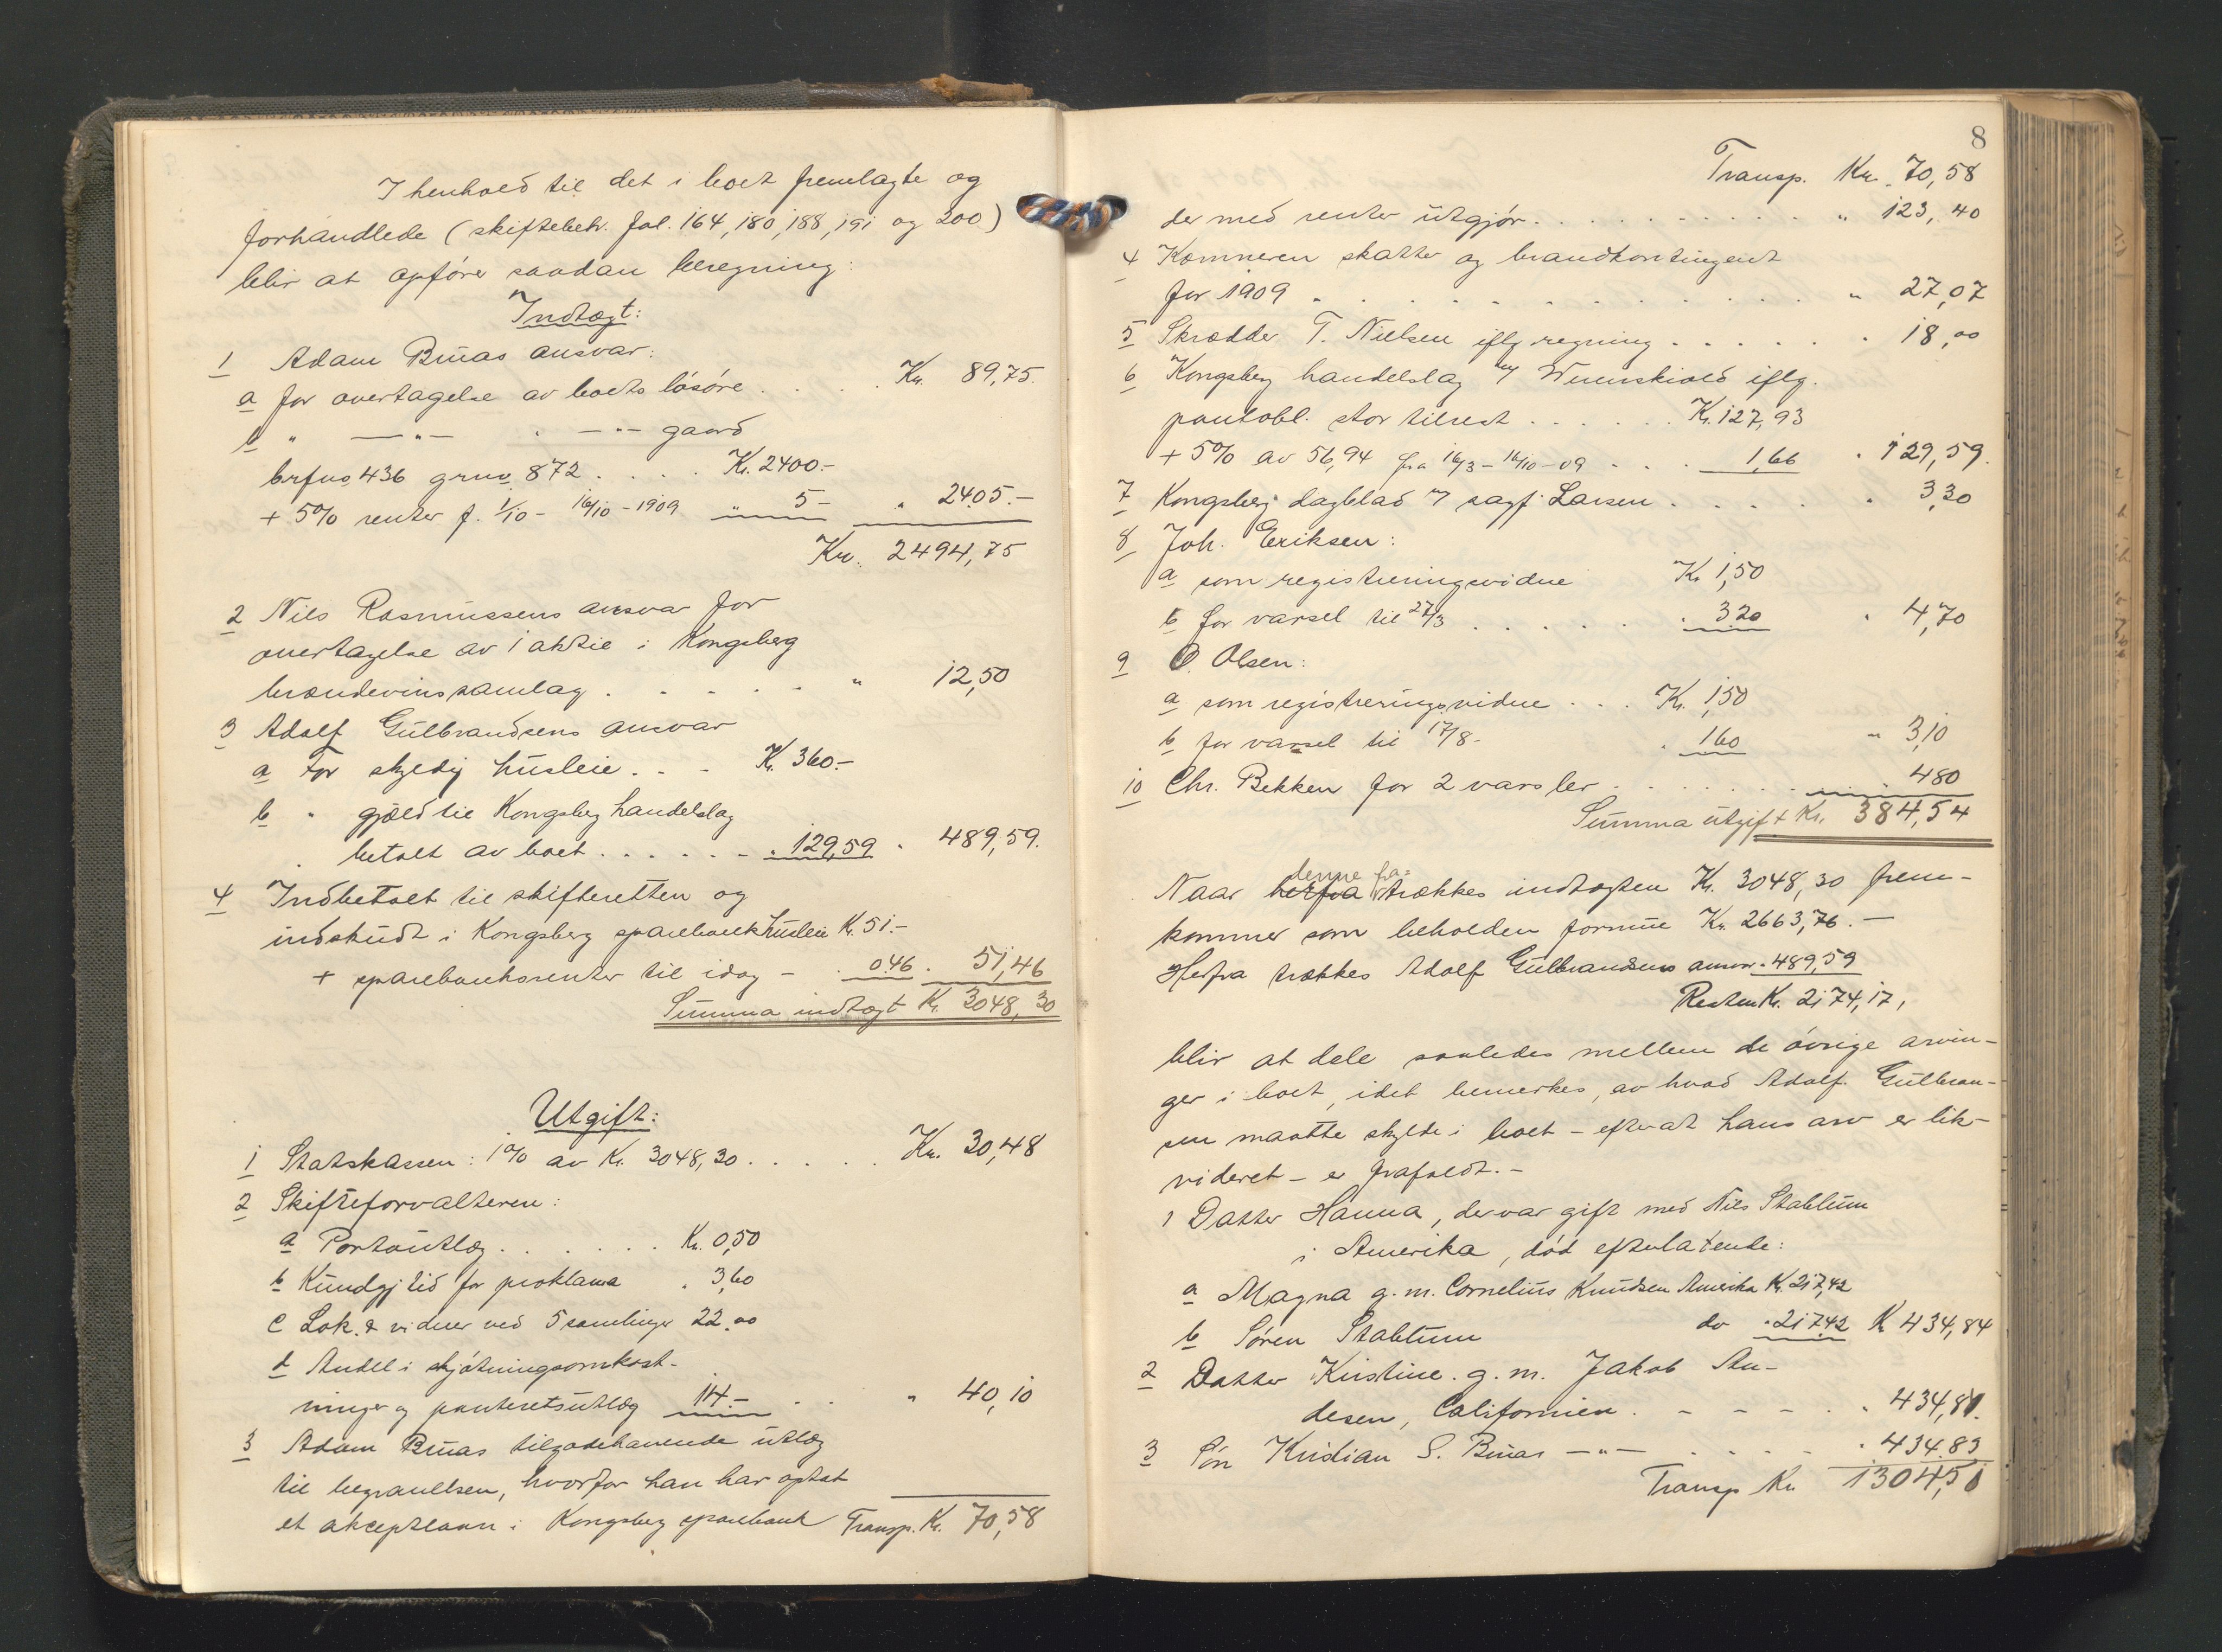 I henhold til det i boet fremlagte og
forhandlede (skiftebeh. fol. 164, 180, 188, 191 og 200)
blir at opføre saadan beregning:
Indtægt:
1 Adam Buaas ansvar:
a for overtagelse av boets løsøre . . . . Kr. 89,75.
b " —"— . —"— gaard
brfno. 436 grno 872 . . . . Kr. 2400.-
+ 5% renter f. 1/10 - 16/10 - 1909 " 5- " 2405.-
Kr. 2494,75
2 Nils Rasmussens ansvar for
overtagelse av 1 aktie i Kongsberg
brændevinssamlag . . . . . " 12,50
3 Adolf Gulbrandsens ansvar
a For skyldig husleie . . . Kr. 360.-
b " gjæld til Kongsberg handelslag
betalt av boet . . . . . . " 129,59 " 489,59.
4 Indbetalt til skifteretten og
indskudt i Kongsberg sparebank husleie Kr. 51.-
+ sparebanksrenter til idag - . 0.46 . 51,46
Summa indtægt Kr. 3048,30
Utgift:
1 Statskassen: 1% av Kr. 3048,30 . . . . . Kr. 30,48
2 Skifteforvalteren:
a Portoutlæg . . . . . . . Kr. 0,50
b Kundgj tid for proklama . 3,60
c Lok. & vidner ved 5 samlinger 22,00
d Andel i skjøtningsomkost-
ninger og panteretsutlæg 14.- . . " 40,10
3 Adam Buaas tilgodehavende utlæg
til begravelsen, hvorfor han har optat
et akceptlaan i Kongsberg sparebank Transp. Kr. 70,58
8
Transp. Kr. 70,58
der med renter utgjør . . . . . . . . . . " 123,40
4 Kæmneren skatter og brandkontingent
for 1909 . . . . . . . . . . . " 27,07
5 Skrædder T. Nielsen iflg regning . . . . . . . 18,00
6 Kongsberg handelslag iflg.
pantobl. stor tilrest . . . . . . Kr. 127,93
+ 5% av 56,94 fra 16/3 - 16/10 - 09 . . . 1,66 . 129,59.
7 Kongsberg dagblad v/ sagf. Larsen . . . . . 3,30
8 Joh. Eriksen:
a som registreringsvidne Kr. 1,50
b for varsel til 27/3 . . . . . . 3.20 . 4,70
9 O. Olsen:
a som registreringsvidne . . . Kr. 1,50
b for varsel til 17/8 - . 1,60 " 3,10
10 Chr. Bekken for 2 varsler . . . . . . . 4,80
Summa utgift Kr. 384,54
denne fra-
Naar herfra trækkes indtægten Kr. 3048,30 frem-
kommer som beholden formue Kr. 2663,76.-
Herfra trækkes Adolf Gulbrandsens ansvar . 489,59
Resten Kr. 2174,17,
blir at dele saaledes mellem de øvrige arvin-
ger i boet, idet bemerkes, av hvad Adolf. Gulbran-
sen maatte skylde i boet - efterat hans arv er lik-
videret - er frafaldt.-
1 Datter Hanna, der var gift med Nils Stablum
i Amerika, død efterlatende:
a Magna g. m. Cornelius Knudsen Amerika Kr. 217,42
b Søren Stablum do . 217,42 Kr 434,84
2 Datter Kristine. g. m. Jakob An-
desen, Californien . - - - . . 434,81.
3 Søn Kristian S. Buaas —"— . . . . . 434.83
Transp Kr 1304,51